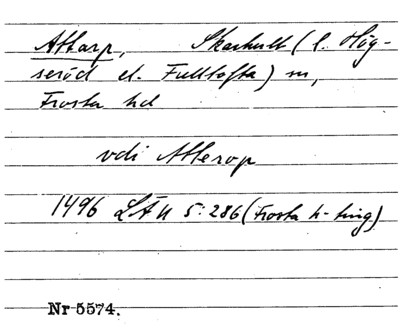 Attarp, Skarhult (l. Hög-
seröd el. Fulltofta) sn,
Frosta hd
vdi Atterop
1496 LÄU 5:286 (Frosta h-ting)
Nr 5574.